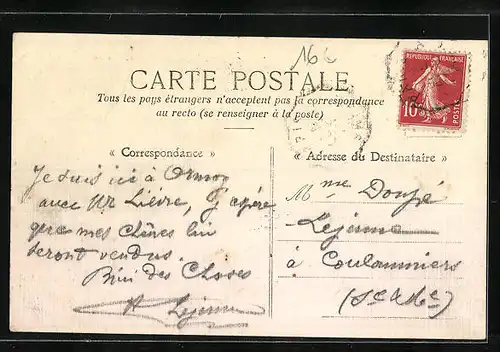 16
CARTE POSTALE
Tous les pays étrangers n'acceptent pas la correspondance
au recto (se renseigner à la poste)
REPUBLIQUE FRANÇAISE
10
POSTES
« Correspondance »
« Adresse du Destinataire »
Je suis ici à
avec Mr Lièvre, j'espère
que mes chênes lui
seront vendus.
Bien des Choses
Lejeune
Mme
Lejeune
à Coulommiers
(S. & M.)